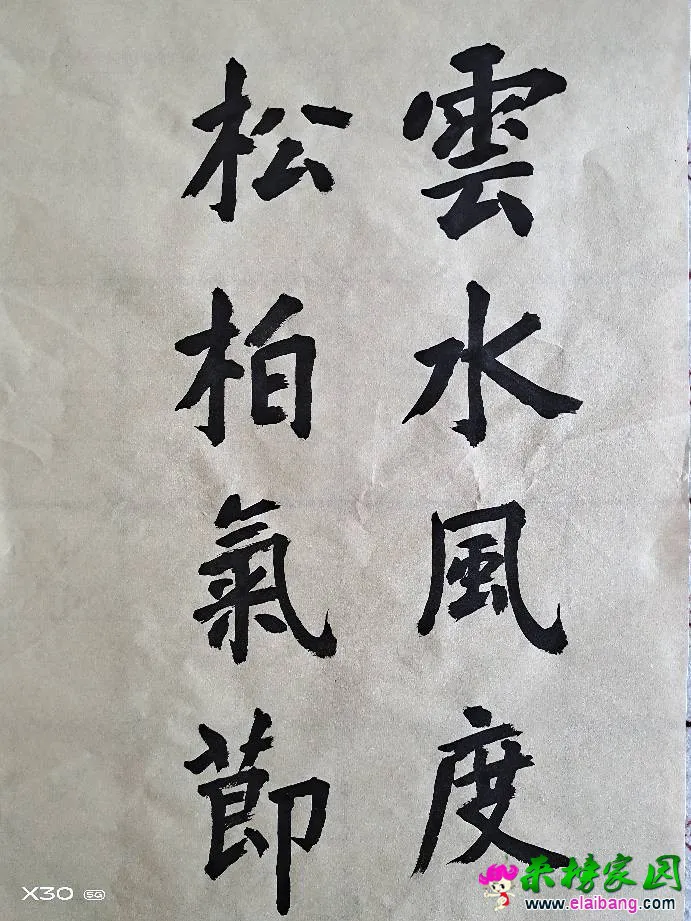 雲水風度
松柏氣節
X30 5G
来榜家园
www.elaibang.com